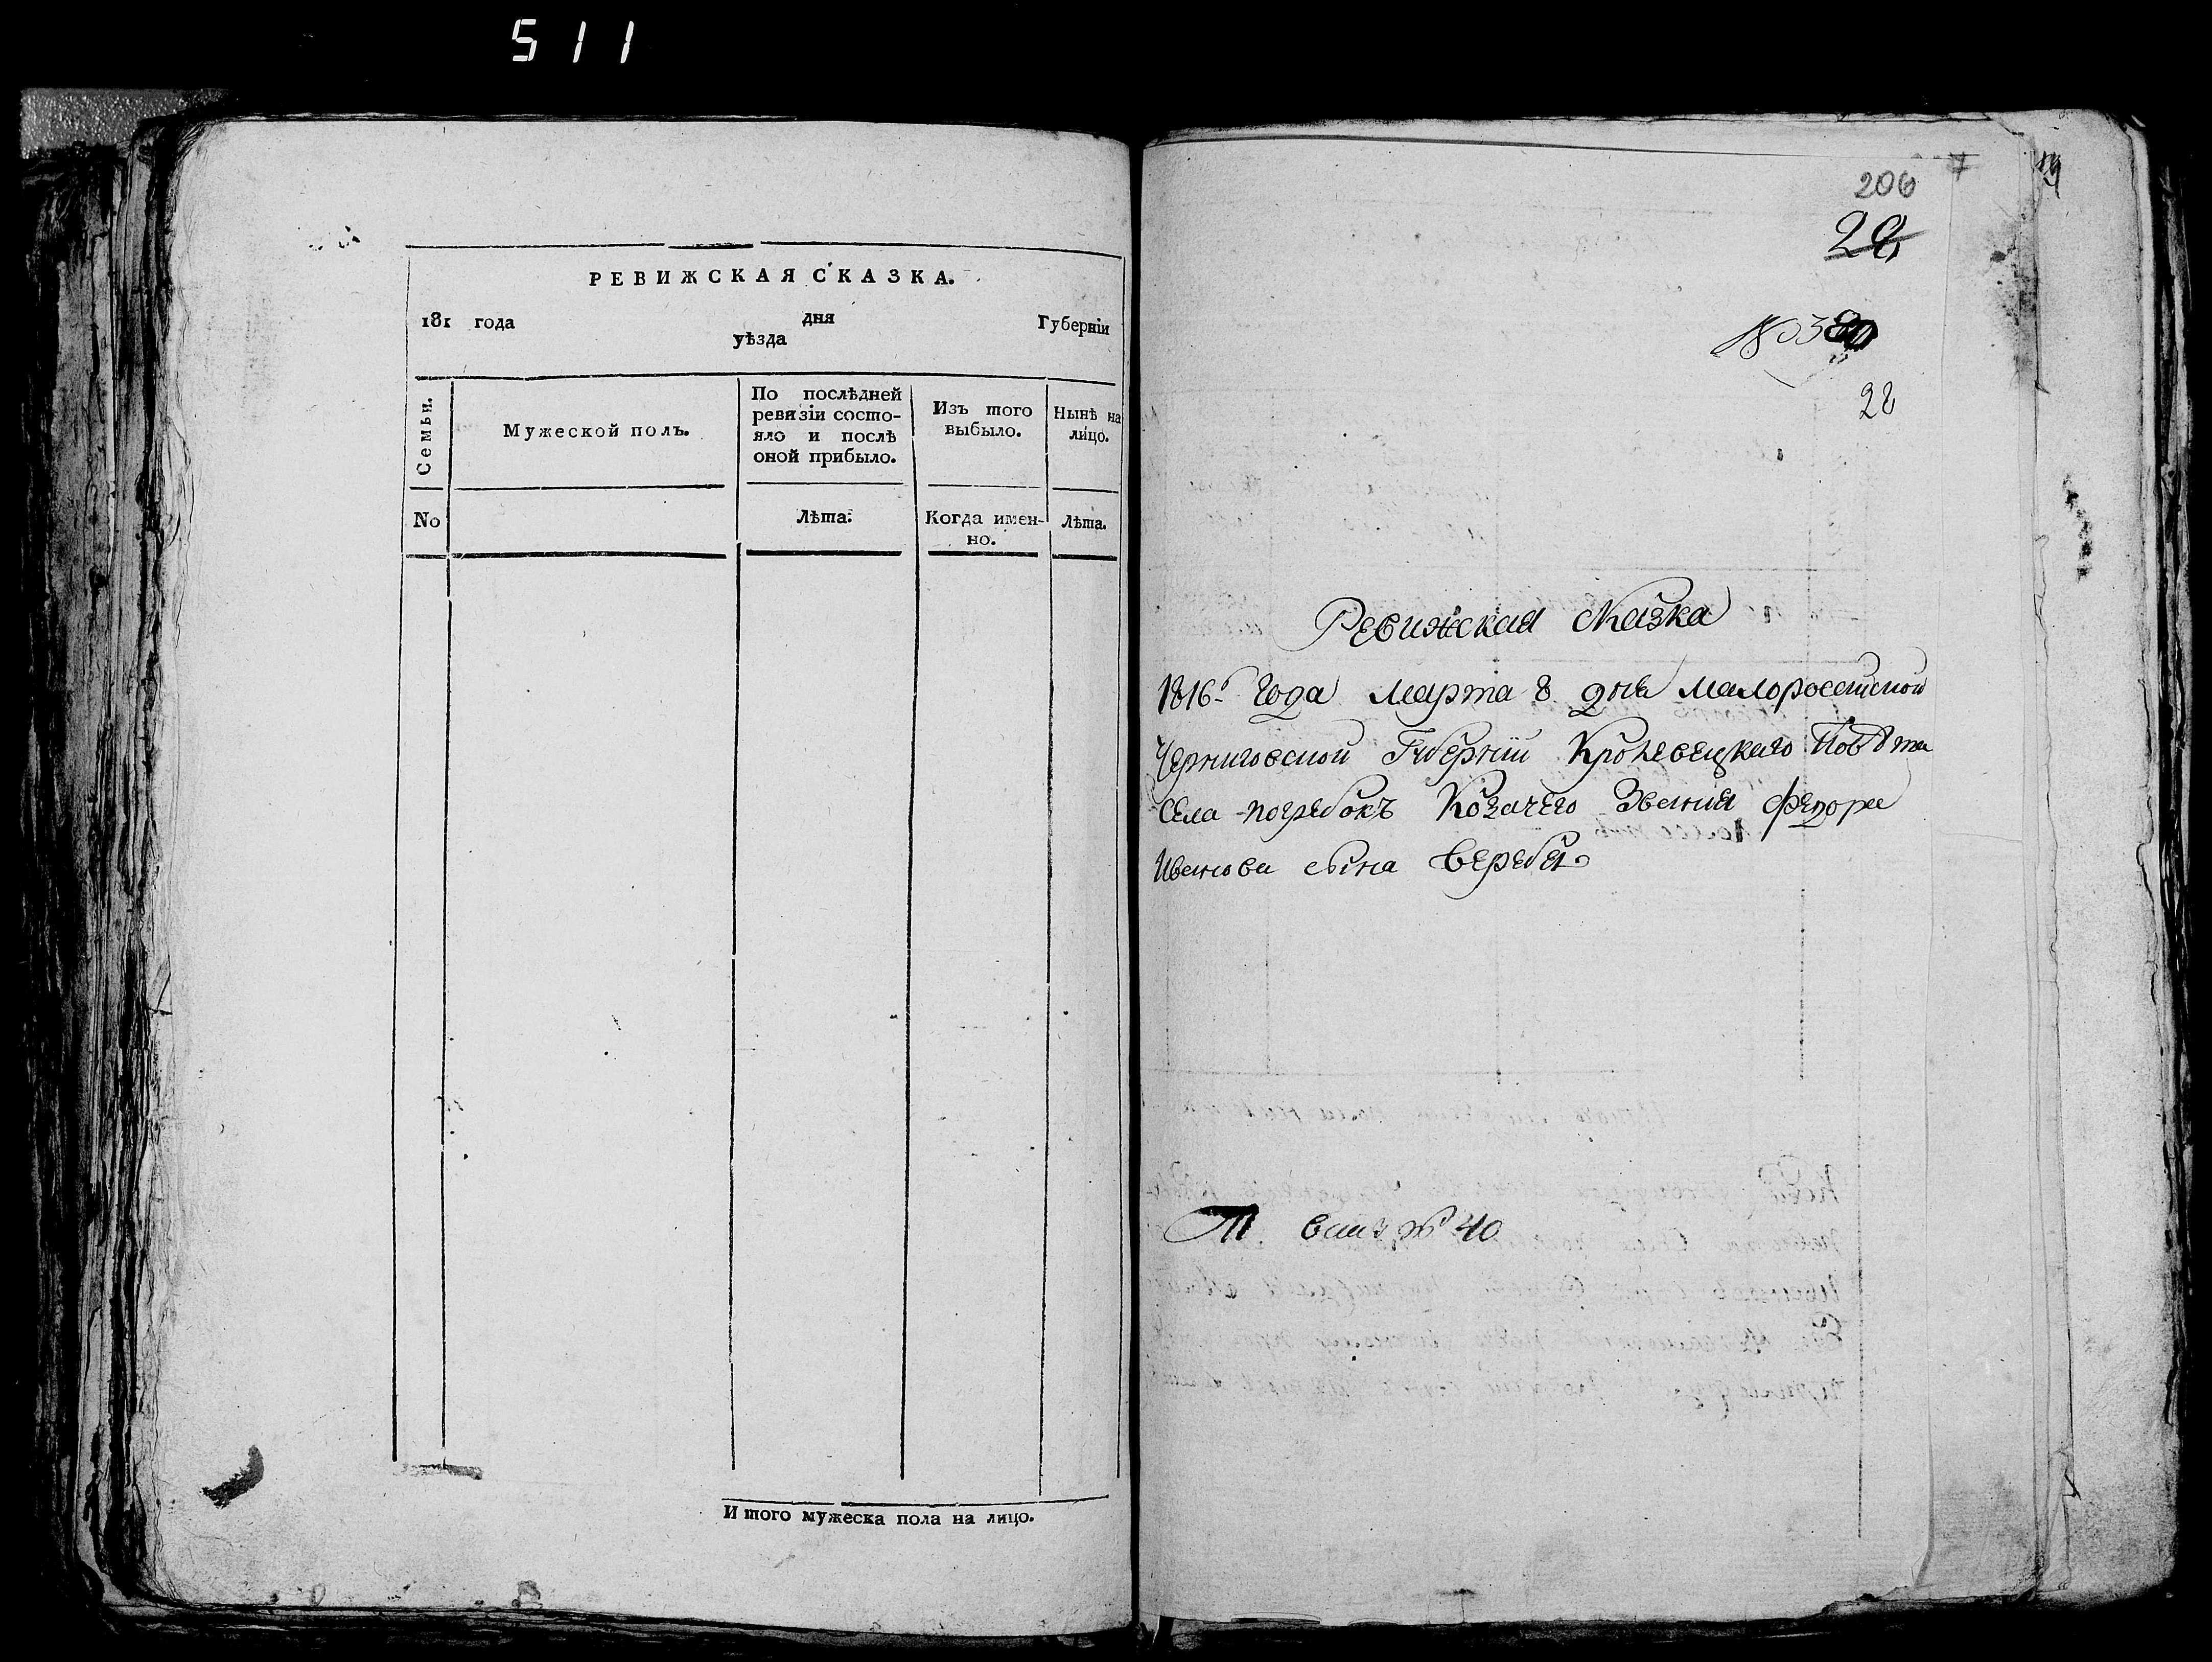 511
РЕВИЖСКАЯ СКАЗКА.
181 года дня Губерніи
уѣзда
Семьи.
Мужеской полъ.
По послѣдней ревизіи состо-
яло и послѣ
оной прибыло.
Изъ того
выбыло.
Нынѣ на
лицо.
No
Лѣта.
Когда имен-
но.
Лѣта.
Итого мужеска пола на лицо.
206
28
Ревижская сказка
1816го года марта 8 дня малороссийской
Черниговской Губерніи Кролевецкаго Повѣта
села погребокъ Козачего Звания Федора
Иванова сына Вербы
№ 40